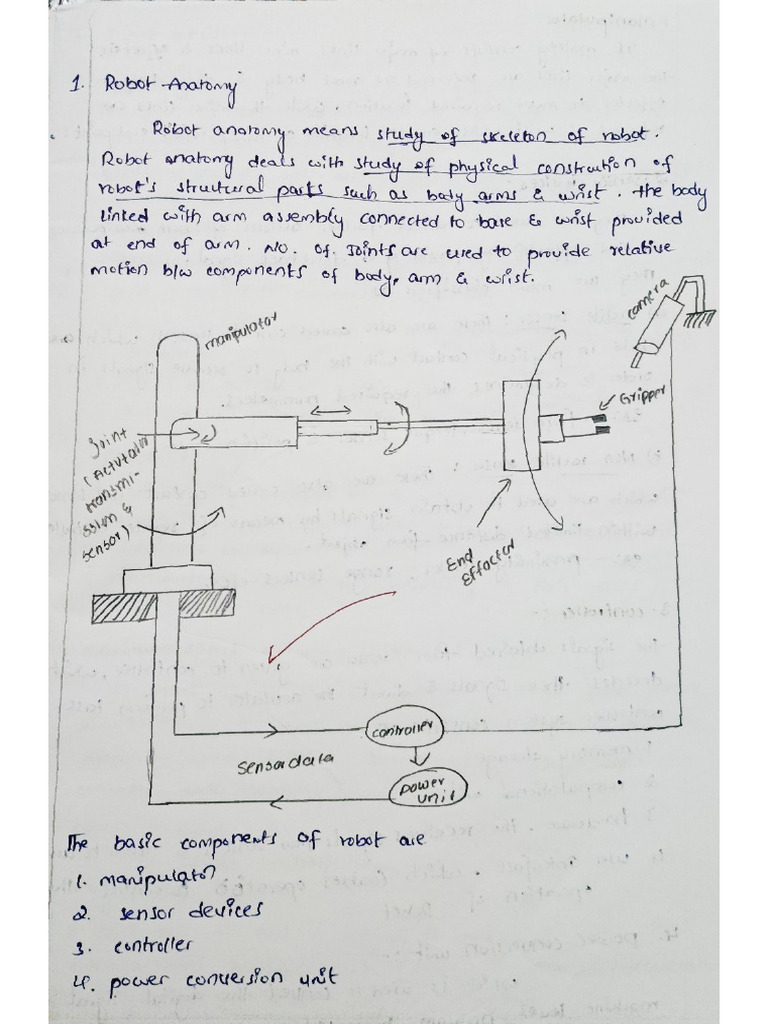 1. Robot Anatomy
Robot anatomy means study of skeleton of robot.
Robot anatomy deals with study of physical construction of
robot's structural parts such as body arms & wrist. The body
linked with arm assembly connected to base & wrist provided
at end of arm. No. of Joints are used to provide relative
motion b/w components of body, arm & wrist.
manipulator
camera
Gripper
Joint
(Actutator
transmi-
ssion &
sensor)
End
Effector
controller
Sensor data
power
unit
The basic components of robot are
1. manipulator
2. sensor devices
3. controller
4. power conversion unit